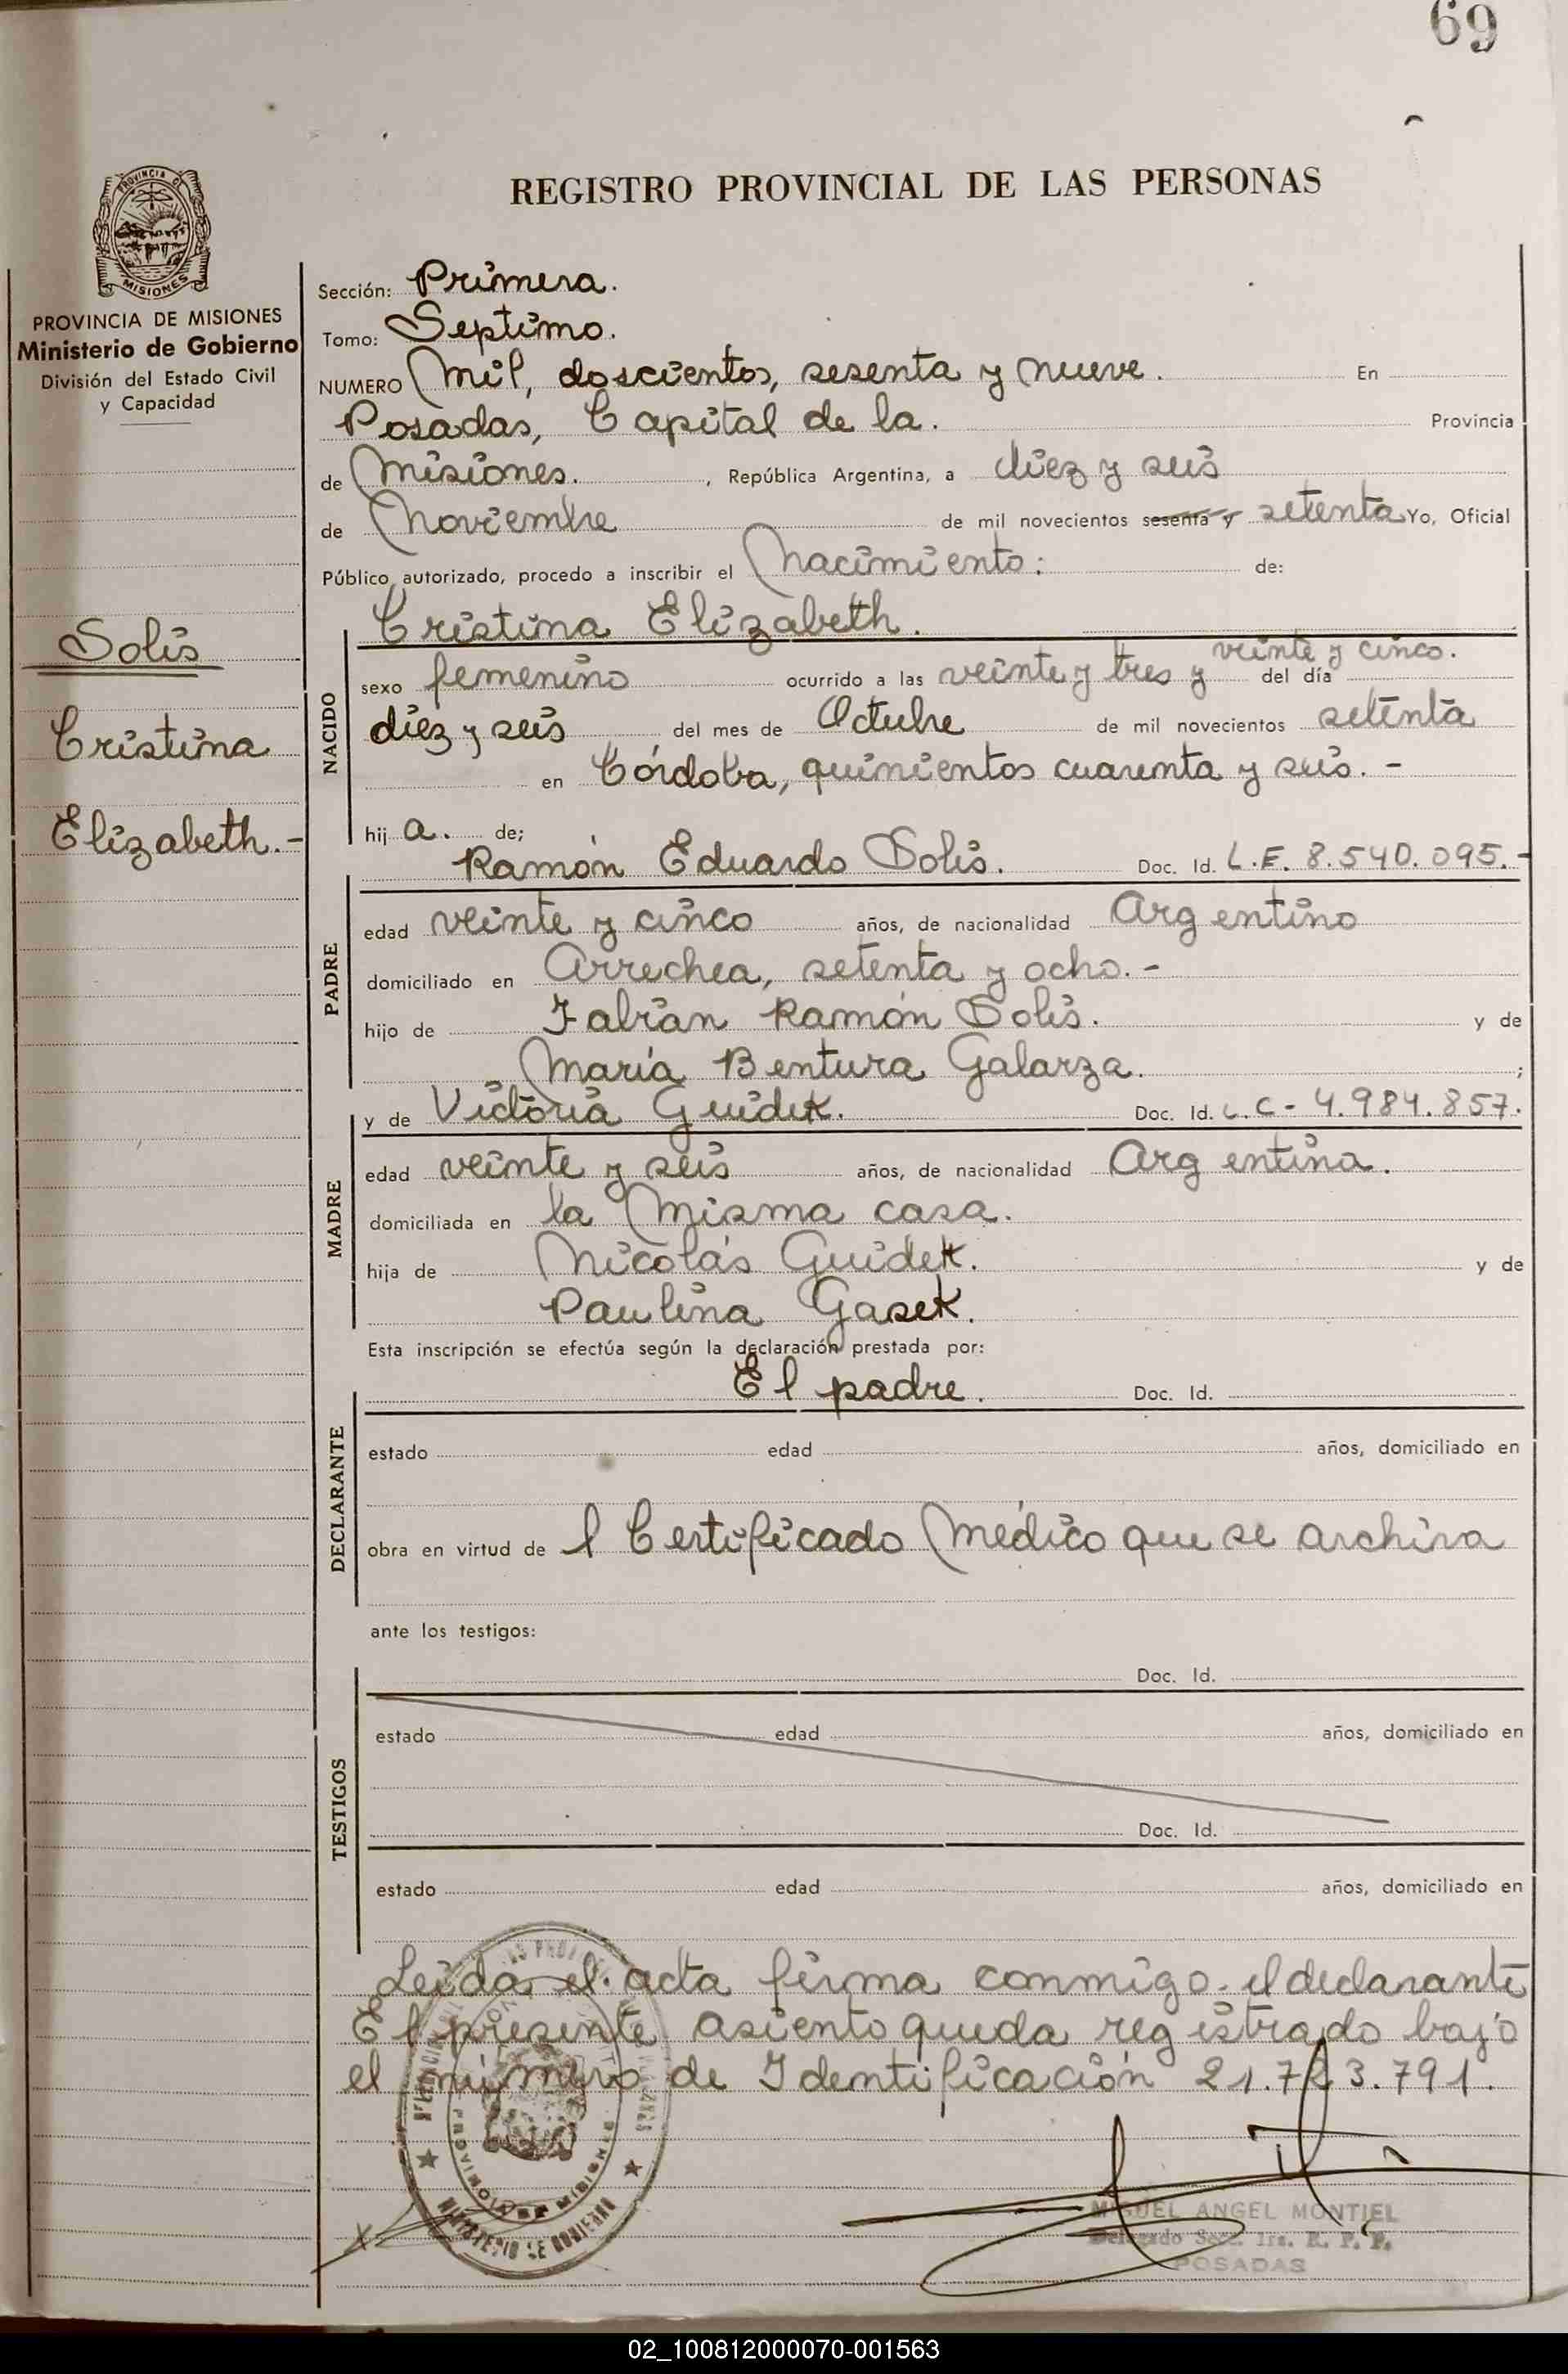 69
REGISTRO PROVINCIAL DE LAS PERSONAS
PROVINCIA DE
MISIONES
PROVINCIA DE MISIONES
Ministerio de Gobierno
División del Estado Civil
y Capacidad
Solis
Cristina
Elizabeth.-
Sección: Primera.
Tomo: Septimo.
NUMERO Mil, doscientos, sesenta y nueve. En
Posadas, Capital de la. Provincia
de Misiones. , República Argentina, a diez y seis
de Noviembre de mil novecientos sesenta y setenta Yo, Oficial
Público autorizado, procedo a inscribir el Nacimiento: de:
Cristina Elizabeth.
NACIDO
veinte y cinco.
sexo femenino ocurrido a las veinte y tres y del día
diez y seis del mes de Octubre de mil novecientos setenta
en Córdoba, quinientos cuarenta y seis. -
hij a. de;
Ramón Eduardo Solis. Doc. Id. L.E. 8.540.095.-
PADRE
edad veinte y cinco años, de nacionalidad Argentino
domiciliado en Arrechea, setenta y ocho.-
hijo de Fabian Ramón Solis. y de
María Bentura Galarza. ;
y de Victoria Guidek. Doc. Id. L.C- 4.984.857.
MADRE
edad veinte y seis años, de nacionalidad Argentina.
domiciliada en la Misma casa.
hija de Nicolás Guidek. y de
Paulina Gasek.
Esta inscripción se efectúa según la declaración prestada por:
El padre. Doc. Id.
DECLARANTE
estado edad años, domiciliado en
obra en virtud de l Certificado Médico que se archiva
ante los testigos:
Doc. Id.
TESTIGOS
estado edad años, domiciliado en
Doc. Id.
estado edad años, domiciliado en
Leida el. acta firma conmigo. el declarante
El presente asiento queda registrado bajo
el número de Identificación 21.723.791.
PROVINCIA DE MISIONES
MINISTERIO DE GOBIERNO
MIGUEL ANGEL MONTIEL
Delegado Secc. 1ra. R. P. P.
POSADAS
02_100812000070-001563